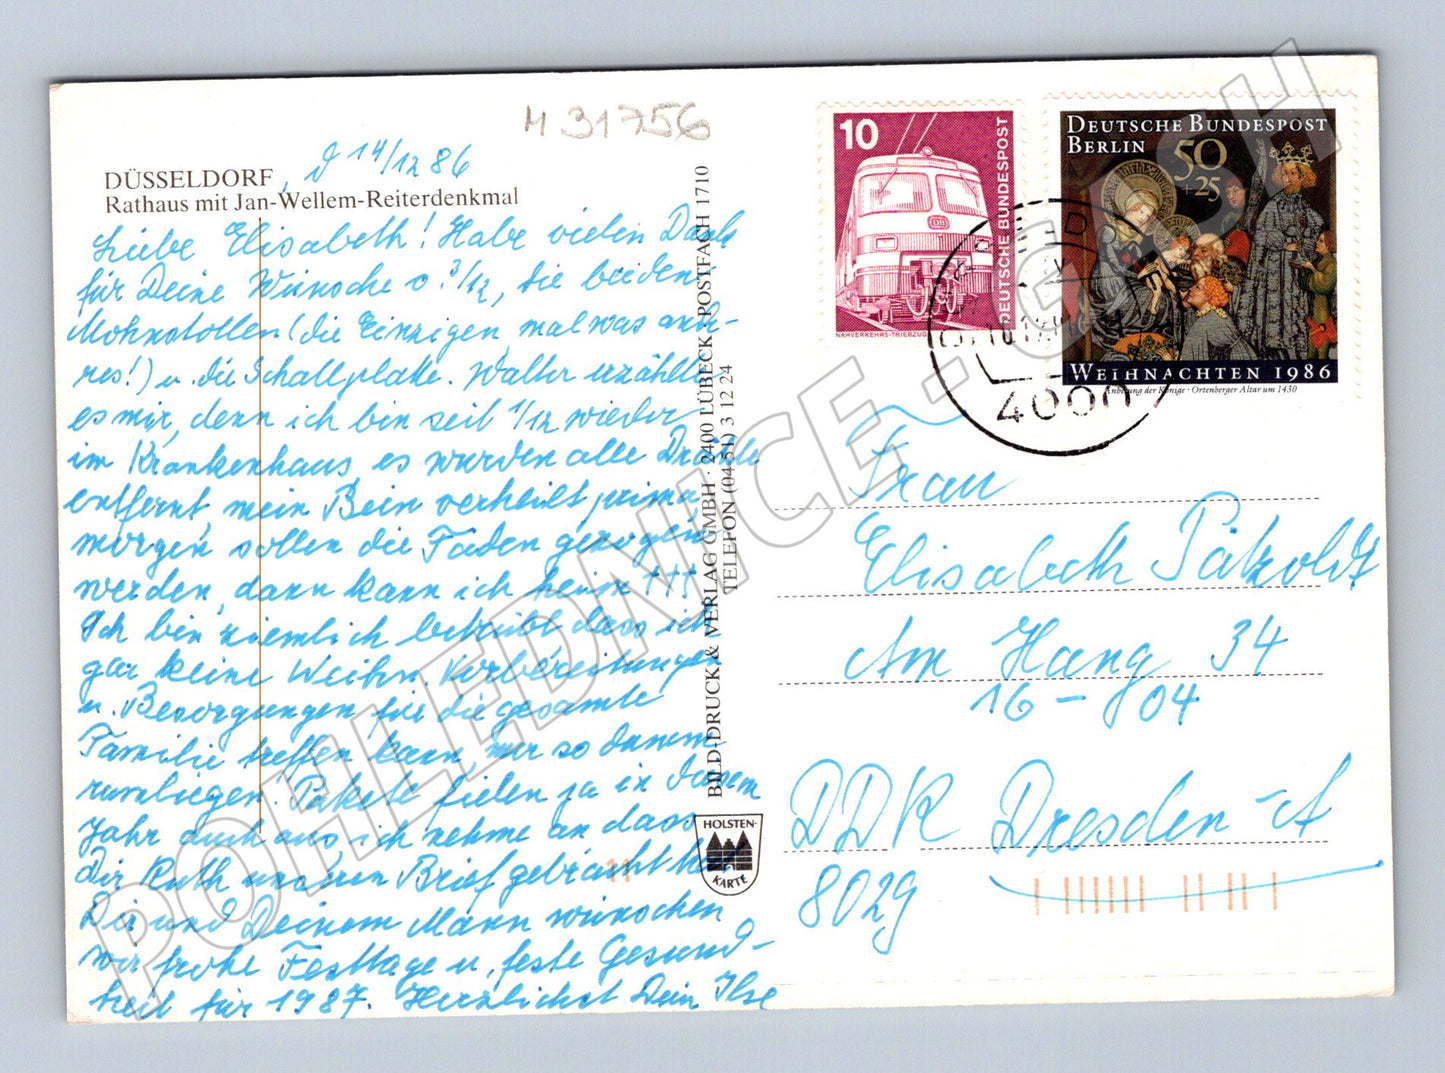 H 31756
DÜSSELDORF, d 14/12 86
Rathaus mit Jan-Wellem-Reiterdenkmal
Liebe Elisabeth! Habe vielen Dank
für Deine Wünsche v. 3/12, die beiden
Mohnstollen (die Einzigen, mal was and-
res!) u. die Schallplatte. Walter erzählte
es mir, denn ich bin seit 1/12 wieder
im Krankenhaus, es wurden alle Drähte
entfernt, mein Bein verheilt prima
morgen sollen die Fäden gezogen
werden, dann kann ich heim !!!
Ich bin ziemlich betrübt dass ich
gar keine Weihn. Vorbereitungen
u. Besorgungen für die gesamte
Familie treffen kann mir so darum
rumliegen. Pakete fielen ja in diesem
Jahr durchaus ich nehme an dass
Dir Ruth unseren Brief gebracht hat
Dir und Deinem Mann wünschen
wir frohe Festtage u. feste Gesund-
heit für 1987. Herzlichst Dein Ilse
BILD, DRUCK & VERLAG GMBH · 2400 LÜBECK · POSTFACH 1710
TELEFON (04 51) 3 12 24
HOLSTEN-
KARTE
10
DEUTSCHE BUNDESPOST
DB
NAHVERKEHRS-TRIEBZUG
DEUTSCHE BUNDESPOST
BERLIN
50
+25
WEIHNACHTEN 1986
Anbetung der Könige · Ortenberger Altar um 1430
4000
Frau
Elisabeth Pätzoldt
Am Hang 34
16-804
DDR Dresden-A
8029
POHLEDNICE-GESCH